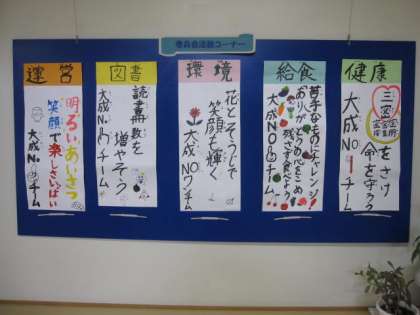 委員会活動コーナー
健康
三密をさけ
命を守ろう
大成NO.1チーム
給食
苦手なものにチャレンジ!
ありがとうの心をこめ
残さず食べよう
大成NO.1チーム
環境
花とそうじで
笑顔も輝く
大成NO.1チーム
図書
読書冊数を
増やそう
大成No.1チーム
運営
明るいあいさつ
笑顔で楽しさいっぱい
大成No.1チーム